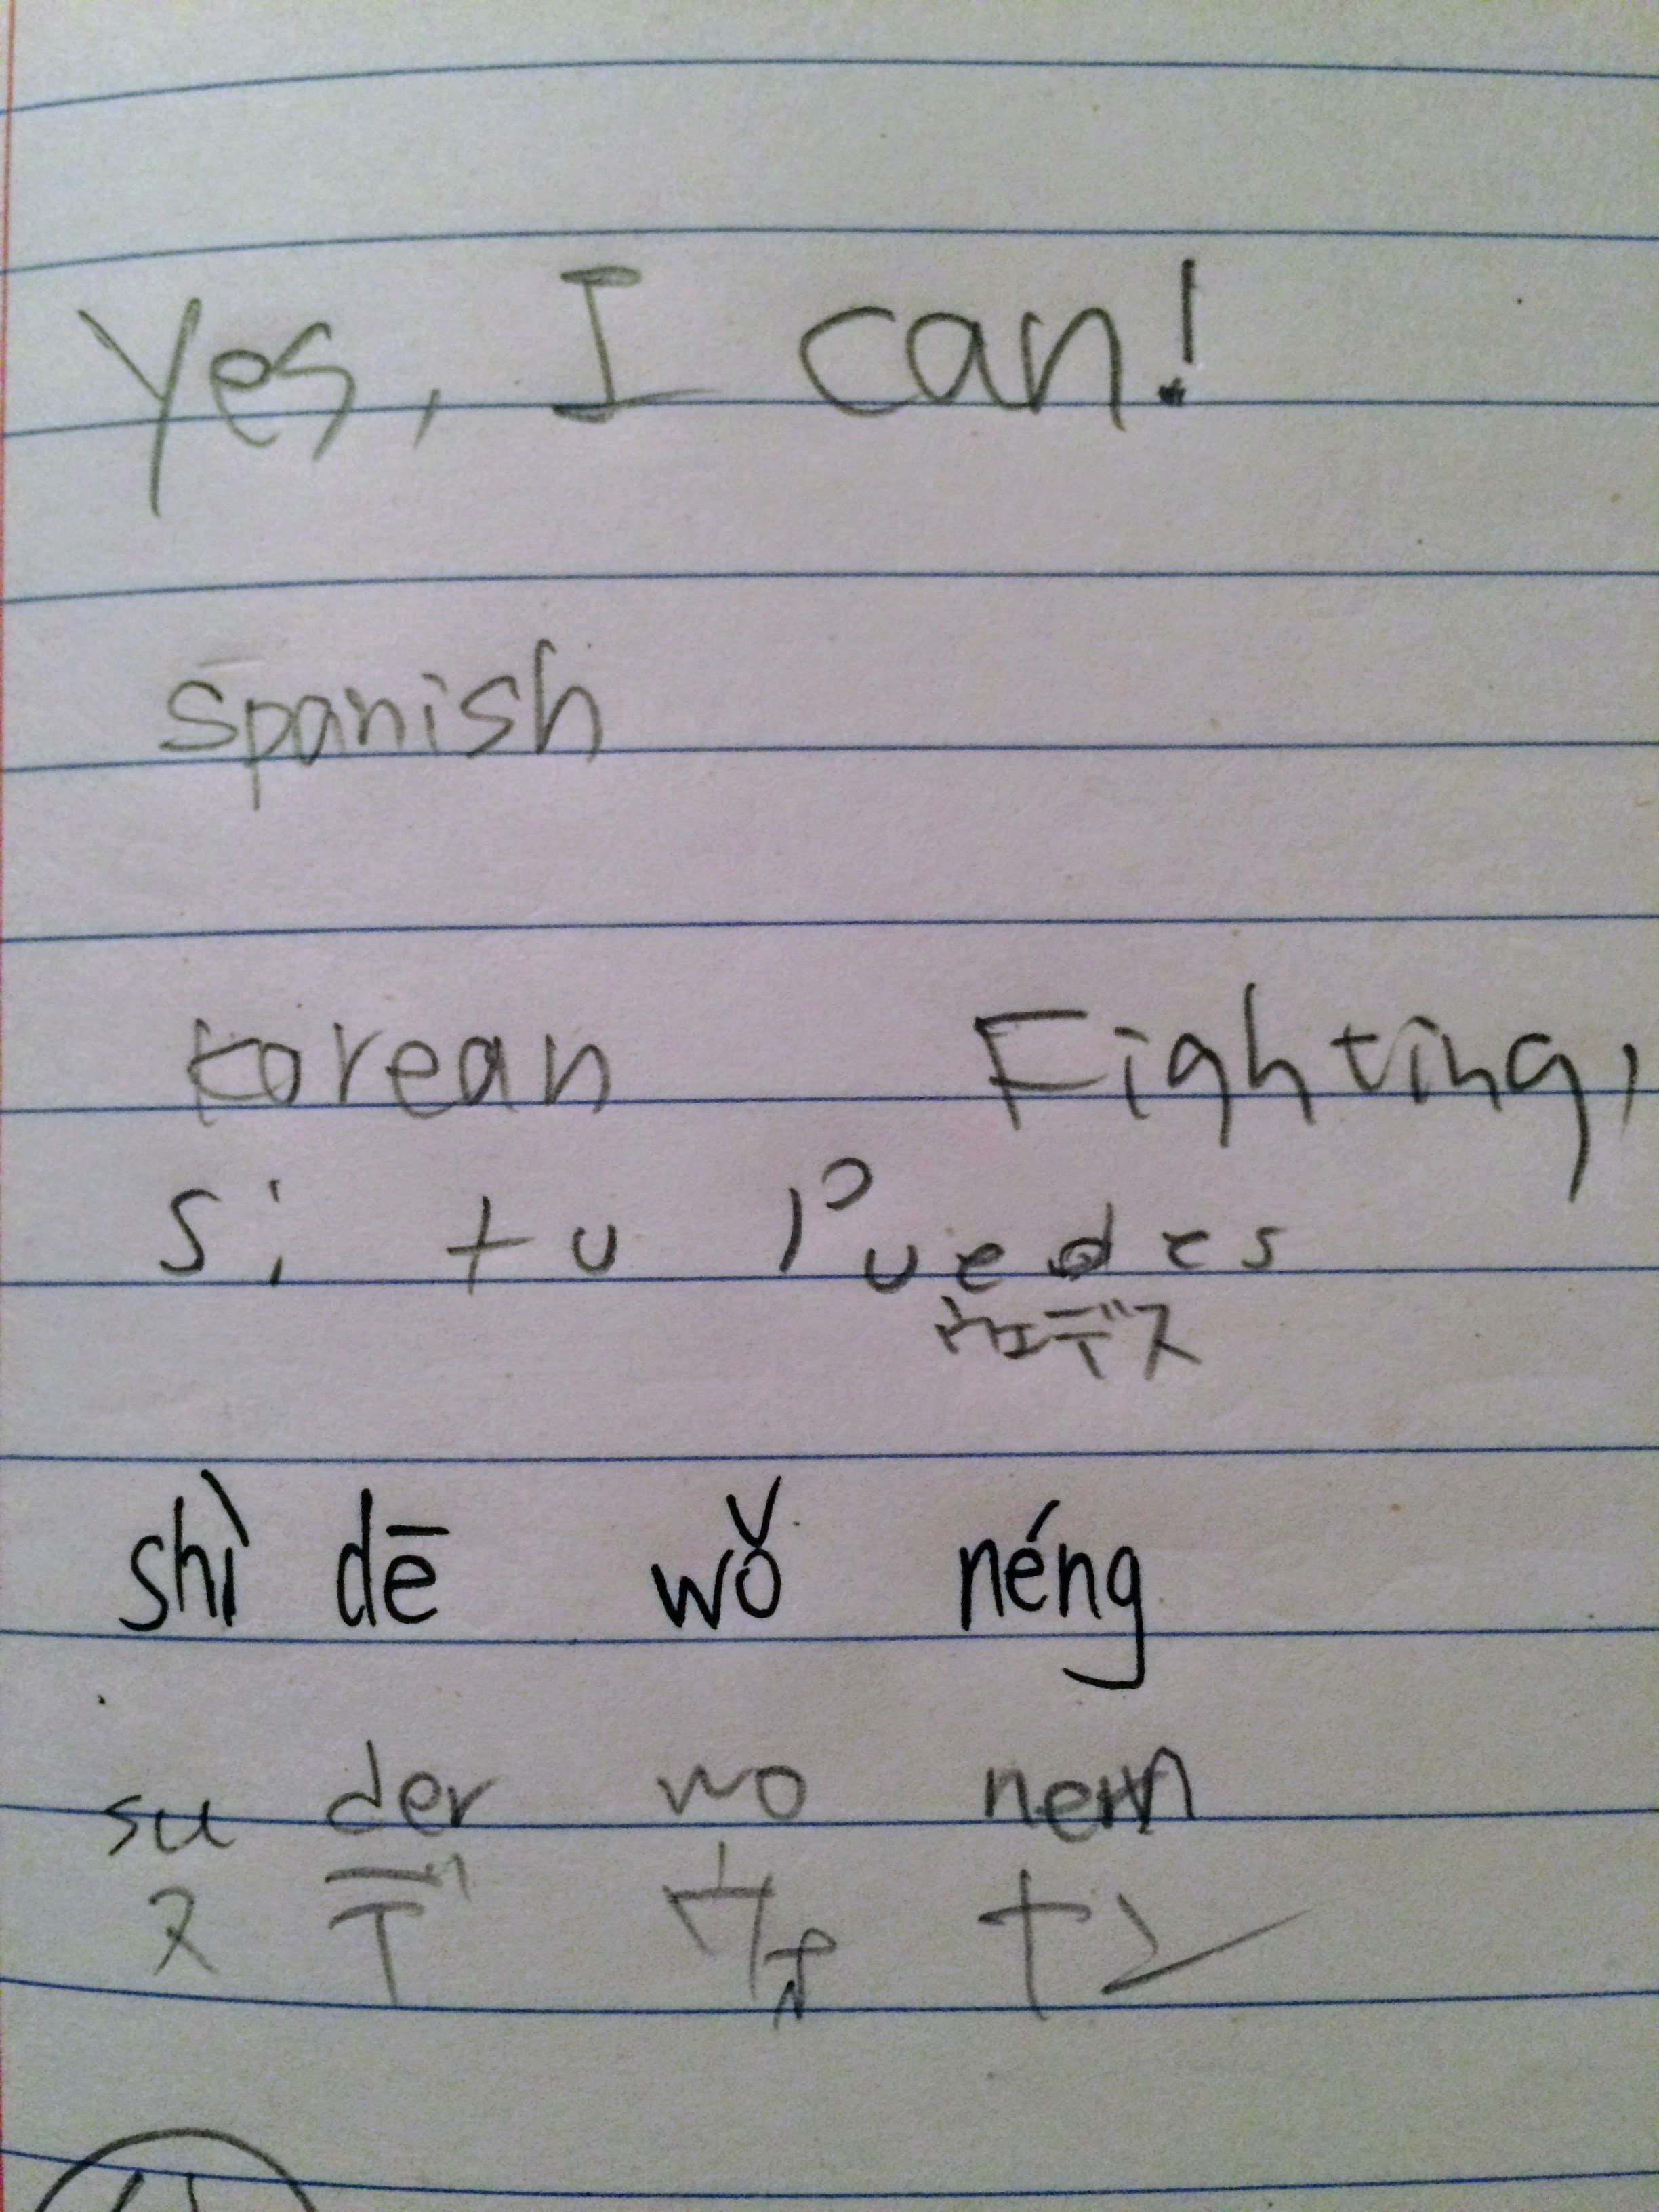 Yes, I can!
spanish
korean Fighting,
Si tu Puedes
ウェデス
shì dē wǒ néng
su der wo nern
ス デ ウォ ナン